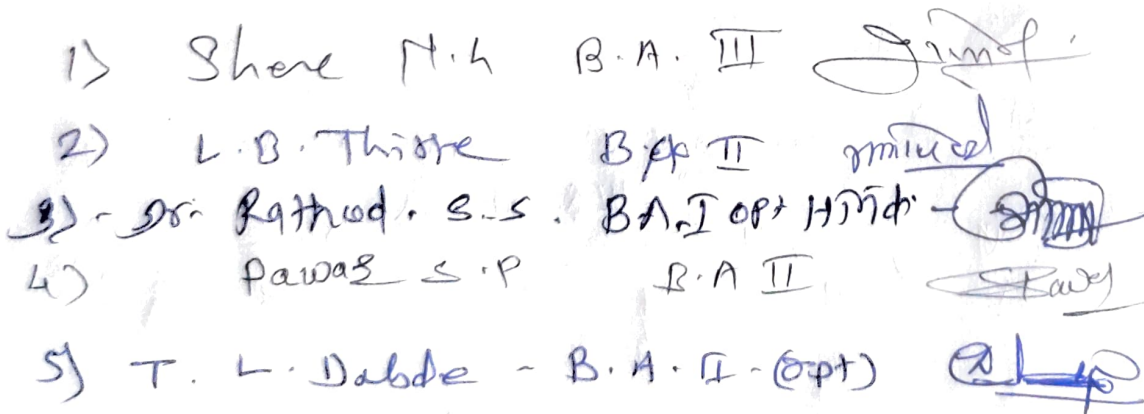 1) Shere N.h B.A. III
2) L.B. Thore B.A II
3) - Dr. Rathod. S.S. B.A.I opt Hindi -
4) Pawar S.P B.A II
5) T. L. Dabde - B.A. II - (opt)